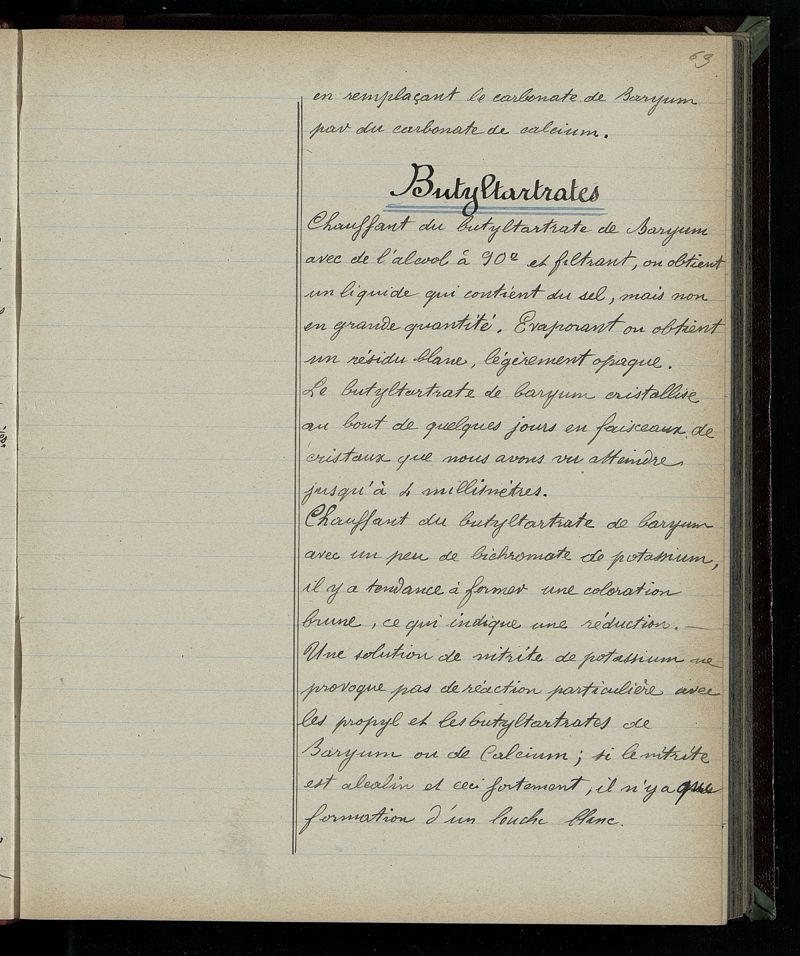 63
en remplaçant le carbonate de Baryum
par du carbonate de calcium.
Butyltartrates
Chauffant du butyltartrate de Baryum
avec de l'alcool à 90° et filtrant, on obtient
un liquide qui contient du sel, mais non
en grande quantité. Evaporant on obtient
un résidu blanc, légèrement opaque.
Le butyltartrate de baryum cristallise
au bout de quelques jours en faisceaux de
cristaux que nous avons vu atteindre
jusqu'à 4 millimètres.
Chauffant du butyltartrate de baryum
avec un peu de bichromate de potassium,
il y a tendance à former une coloration
brune, ce qui indique une réduction. —
Une solution de nitrite de potassium ne
provoque pas de réaction particulière avec
les propyl et les butyltartrates de
Baryum ou de Calcium; si le nitrite
est alcalin et ceci fortement, il n'y a que
formation d'un louche blanc.